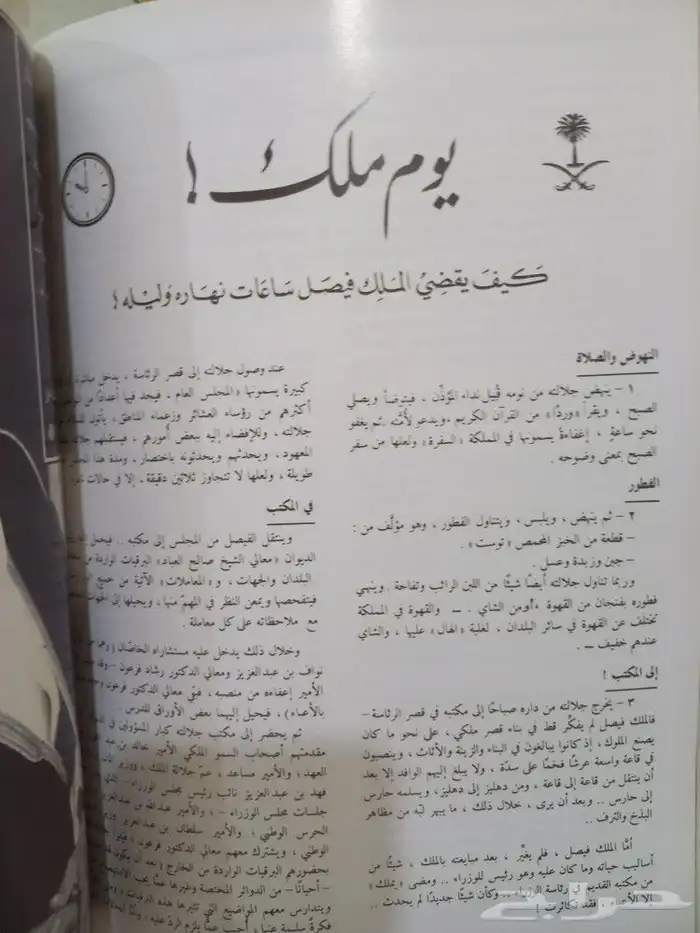 يوم ملك !
كَيفَ يَقضِيْ المَلِك فيصَل سَاعَات نهَاره وَليله !
النهوض والصلاة
١ – ينهض جلالته من نومه قُبيل نداء المؤذّن ، فيتوضأ ويصلي
الصبح ، ويقرأ «وردًا» من القرآن الكريم ، ويدعو لأُمّته . ثم يغفو
نحو ساعةٍ ، إغفاءةً يسمونها في المملكة «السفرة» ولعلها من سفر
الصبح بمعنى وضوحه .
الفطور
٢ – ثم ينهض ، ويلبس ، ويتناول الفطور ، وهو مؤلّف من :
– قطعة من الخبز المحمص «توست» .
– جبن وزبدة وعسل .
وربما تناول جلالته أيضًا شيئًا من اللبن الرائب وتفاحة . وينهي
فطوره بفنجان من القهوة أو من الشاي . — والقهوة في المملكة
تختلف عن القهوة في سائر البلدان ، لغلبة «الهال» عليها ، والشاي
عندهم خفيف — .
إلى المكتب !
٣ – يخرج جلالته من داره صباحًا إلى مكتبه في قصر الرئاسة –
فالملك فيصل لم يفكّر قط في بناء قصر ملكي ، على نحو ما كان
يصنع الملوك ، إذ كانوا يبالغون في البناء والزينة والأثاث ، وينصبون
في قاعة واسعة عرشًا فخمًا على سدّة ، ولا يبلغ إليهم الوافد إلا بعد
أن ينتقل من قاعة إلى قاعة ، ومن دهليز إلى دهليز ، ويسلمه حارس
إلى حارس .. وبعد أن يرى ، خلال ذلك ، ما يبهر لبّه من مظاهر
البذخ والترف ..
أمّا الملك فيصل ، فلم يغيّر ، بعد مبايعته بالملك ، شيئًا من
أساليب حياته وما كان عليه وهو رئيس للوزراء .. ومضى «يملك»
من مكتبه القديم في رئاسة الوزراء ... وكأن شيئًا جديدًا لم يحدث ..
إلا الأعباء ، فقد تكاثرت !
عند وصول جلالته إلى قصر الرئاسة ، يدخل
كبيرة يسمونها «المجلس العام ، فيجد فيها أعدادًا من
أكثرهم من رؤساء العشائر وزعماء المناطق ، يأتون
جلالته ، وللإفضاء إليه ببعض أمورهم ، فيستقبلهم
المعهود ، ويحدثهم ويحدثونه باختصار . ومدة هذا
طويلة ، ولعلها لا تتجاوز ثلاثين دقيقة ، إلا في حالات
في المكتب
وينتقل الفيصل من المجلس إلى مكتبه .. فيحمل
الديوان «معالي الشيخ صالح العباد» البرقيات الواردة من
البلدان والجهات ، و«المعاملات» الآتية من جميع
فيتفحصها ويمعن النظر في المهمّ منها ، ويحيلها إلى الجهات
مع ملاحظاته على كل معاملة .
وخلال ذلك يدخل عليه مستشاراه الخاصّان (وهما
نواف بن عبد العزيز ومعالي الدكتور رشاد فرعون – وقد
الأمير إعفاءه من منصبه ، فبقي معالي الدكتور فرعون
بالأعباء) ، فيحيل إليهما بعض الأوراق للدرس .
ثم يحضر إلى مكتب جلالته كبار المسؤولين في
مقدمتهم أصحاب السمو الملكي الأمير خالد بن عبد
العهد ، والأمير مساعد ، عمّ جلالة الملك ،
فهد بن عبد العزيز نائب رئيس مجلس الوزراء –
جلسات مجلس الوزراء – ، والأمير عبد الله بن عبد
الحرس الوطني ، والأمير سلطان بن عبد العزيز
الوطني ، ويشترك معهم معالي الدكتور فرعون ،
بحضورهم البرقيات الواردة من الخارج
– أحيانًا – من الدوائر المختصة وغيرها
ويتدارس معهم المواضيع التي تثيرها هذه البرقيات
فكرةً سليمة عنها ، أجيب عمّا يلزم الردّ عليه ،
حراج